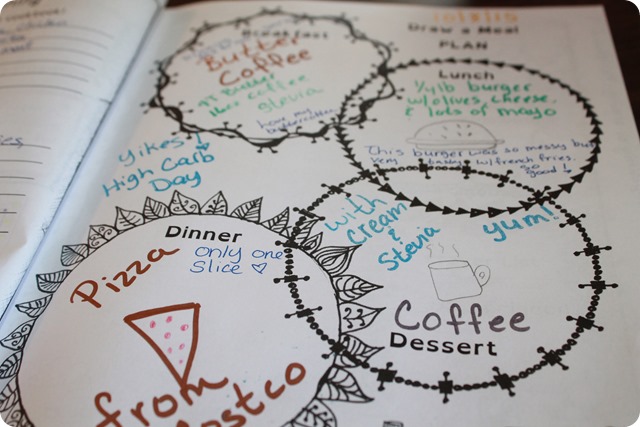 10/3/15
Draw a Meal
PLAN
Breakfast
Butter
Coffee
Butter
coffee
Stevia
Lunch
1/4 lb burger
w/olives, cheese,
& lots of mayo
This burger was so messy but
very tasty w/french fries.
so
good!
Yikes!
High Carb
Day
Dinner
Pizza
only one
slice ♡
from
ostco
with
Cream
&
Stevia
yum!
Coffee
Dessert